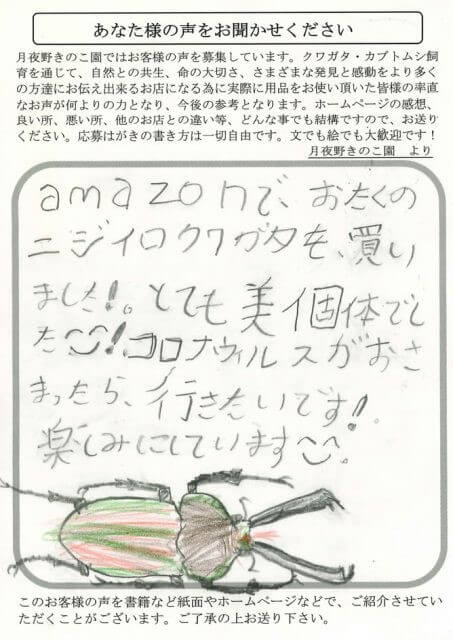 あなた様の声をお聞かせください
月夜野きのこ園ではお客様の声を募集しています。クワガタ・カブトムシ飼
育を通じて、自然との共生、命の大切さ、さまざまな発見と感動をより多く
の方達にお伝え出来るお店になる為に実際に用品をお使い頂いた皆様の率直
なお声が何よりの力となり、今後の参考となります。ホームページの感想、
良い所、悪い所、他のお店との違い等、どんな事でも結構ですので、お送り
ください。応募はがきの書き方は一切自由です。文でも絵でも大歓迎です！
月夜野きのこ園　より
amazonで、おたくの
ニジイロクワガタを、買い
ました!。とても美個体でし
た!.コロナウィルスがおさ
まったら、行きたいです!.
楽しみにしています。
このお客様の声を書籍など紙面やホームページなどで、ご紹介させてい
ただくことがございます。ご了承の上お送り下さい。